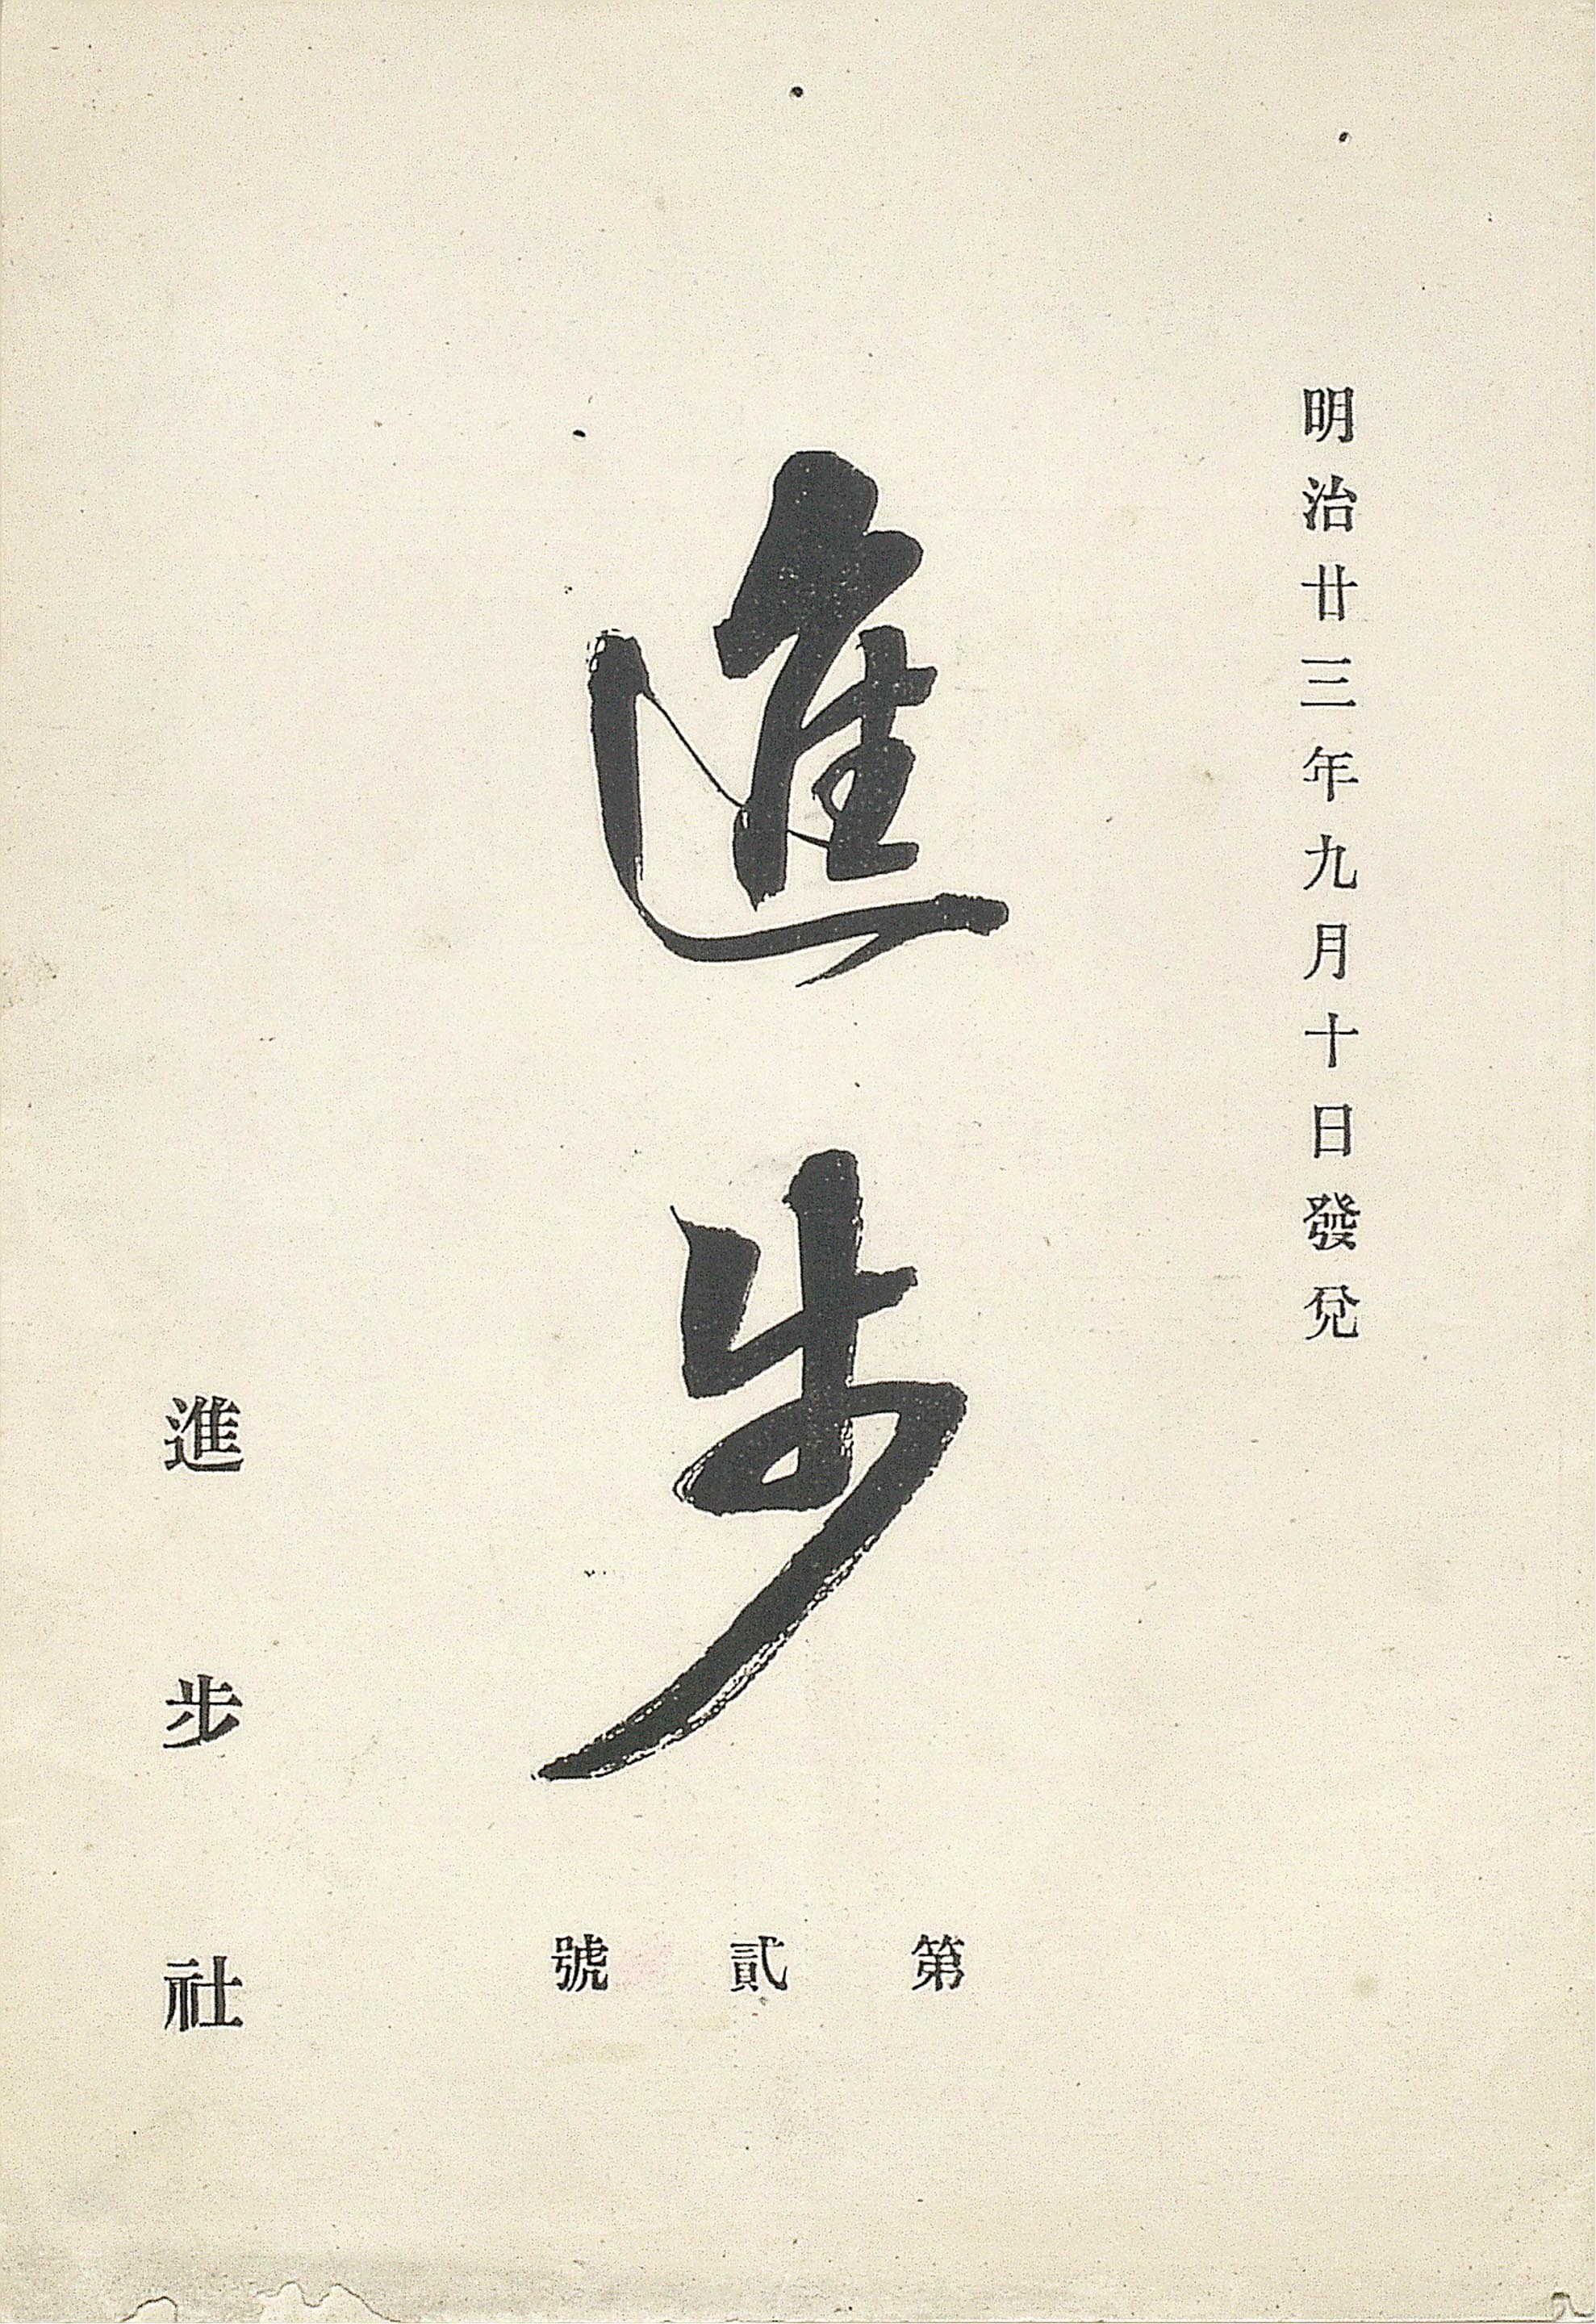 明治廿三年九月十日發兌
進步
第貳號
進步社